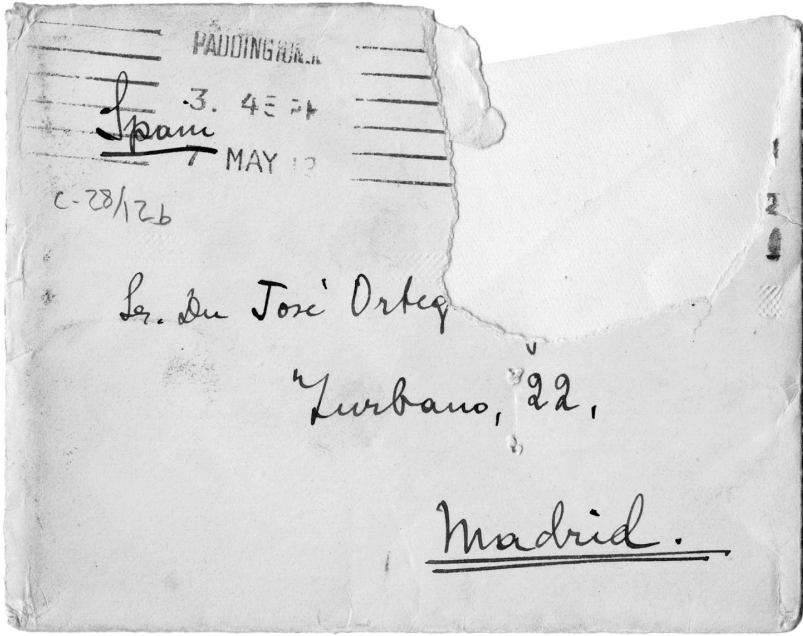 PADDINGTON.
3. 45 PM
Spain
7 MAY
C-28/12b
Sr. Dn José Orteg
Zurbano, 22,
Madrid.